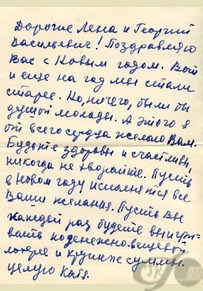 Дорогие Лена и Георгий
Васильевич! Поздравляю
Вас с Новым годом. Вот
и еще на год мы стали
старее. Но, ничего, были бы
душой молоды. А этого я
от всего сердца желаю Вам.
Будьте здоровы и счастливы,
никогда не хворайте. Пусть
в Новом году исполнятся все
Ваши желания. Пусть Вы
каждый раз будете выигры-
вать по денежно-вещевой
лотерее и крупные суммы.
Целую Катя.